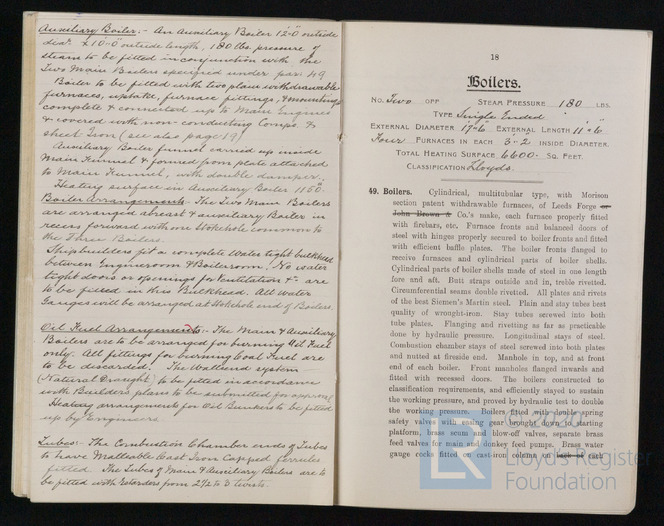 Auxiliary Boiler :- An Auxiliary Boiler 12'-0" outside
diar. & 10'-0" outside length, 180 lbs. pressure of
steam to be fitted in conjunction with the
Two Main Boilers specified under par. 49
Boiler to be fitted with two plain withdrawable
furnaces, uptake, furnace fittings, & mountings
complete & connected up to Main Engines
& covered with non-conducting Compo. &
sheet Iron (see also page 19)
Auxiliary Boiler funnel carried up inside
Main Funnel & formed from plate attached
to Main Funnel, with double damper.
Heating surface in Auxiliary Boiler 1180.
Boiler Arrangements The Two Main Boilers
are arranged abreast & auxiliary Boiler in
recess forward with one stokehole common to
the Three Boilers.
Shipbuilders fit a complete water tight bulkhead
between Engineroom & Boilerroom. No water
tight doors or openings for Ventilation &c are
to be fitted in this Bulkhead. All water
Gauges will be arranged at Stokehole end of Boilers.
Oil Fuel Arrangements :- The Main & Auxiliary
Boilers are to be arranged for burning Oil Fuel
only. All fittings for burning Coal Fuel are
to be discarded. The Wallsend system
(Natural Draught) to be fitted in accordance
with Builders plans to be submitted for approval
Heating arrangements for Oil Bunkers to be fitted
up by Engineers
Tubes :- The Combustion Chamber ends of Tubes
to have Malleable Cast Iron Capped ferrules
fitted. The Tubes of Main & Auxiliary Boilers are to
be fitted with retarders from 2½ to 3 twists.
18
Boilers.
No. Two OFF STEAM PRESSURE 180 LBS.
TYPE Single Ended
EXTERNAL DIAMETER 17'-6" EXTERNAL LENGTH 11'-6"
Four FURNACES IN EACH 3'-2 INSIDE DIAMETER.
TOTAL HEATING SURFACE 6600 SQ. FEET.
CLASSIFICATION Lloyds.
49. Boilers. Cylindrical, multitubular type, with Morison
section patent withdrawable furnaces, of Leeds Forge or
John Brown & Co.'s make, each furnace properly fitted
with firebars, etc. Furnace fronts and balanced doors of
steel with hinges properly secured to boiler fronts and fitted
with efficient baffle plates. The boiler fronts flanged to
receive furnaces and cylindrical parts of boiler shells.
Cylindrical parts of boiler shells made of steel in one length
fore and aft. Butt straps outside and in, treble rivetted.
Circumferential seams double rivetted. All plates and rivets
of the best Siemen's Martin steel. Plain and stay tubes best
quality of wrought-iron. Stay tubes screwed into both
tube plates. Flanging and rivetting as far as practicable
done by hydraulic pressure. Longitudinal stays of steel.
Combustion chamber stays of steel screwed into both plates
and nutted at fireside end. Manhole in top, and at front
end of each boiler. Front manholes flanged inwards and
fitted with recessed doors. The boilers constructed to
classification requirements, and efficiently stayed to sustain
the working pressure, and proved by hydraulic test to double
the working pressure. Boilers fitted with twin-spring
safety valves with easing gear brought down to starting
platform, brass scum and blow-off valves, separate brass
feed valves for main and donkey feed pumps. Brass water
gauge cocks fitted on cast-iron column on each each
© 2020
LR Lloyd's Register
Foundation